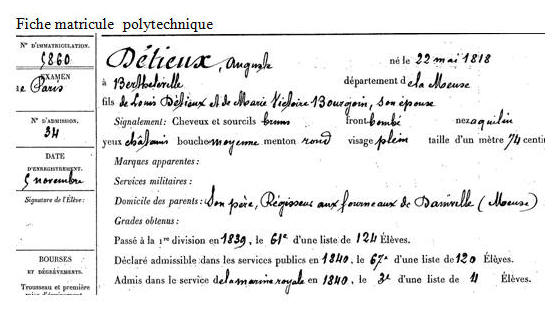 Fiche matricule polytechnique
N° D'IMMATRICULATION.
5860
EXAMEN
de Paris
N° D'ADMISSION.
34
DATE
D'ENREGISTREMENT.
5 novembre
Signature de l'Élève :
BOURSES
ET DÉGRÈVEMENTS.
Trousseau et première
Délieux, Auguste né le 22 mai 1818
à Bertheléville département de la Meuse
fils de Louis Délieux et de Marie Victoire Bourgoin, son épouse
Signalement : Cheveux et sourcils bruns front bombé nez aquilin
yeux châtains bouche moyenne menton rond visage plein taille d'un mètre 74 centi
Marques apparentes :
Services militaires :
Domicile des parents : Son père, Régisseur aux fourneaux de (Meuse)
Grades obtenus :
Passé à la 1re division en 1839, le 61e d'une liste de 124 Élèves.
Déclaré admissible dans les services publics en 1840, le 67e d'une liste de 120 Élèves.
Admis dans le service de la marine royale en 1840, le 3e d'une liste de 4 Élèves.